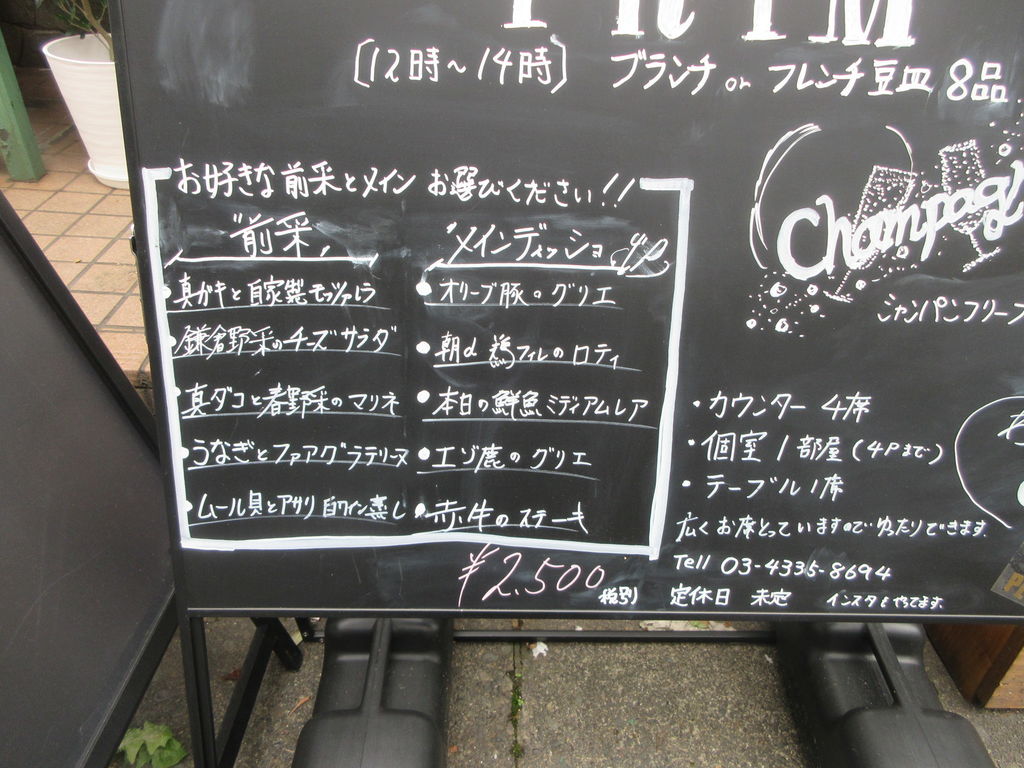 (12時〜14時) ブランチ or フレンチ豆皿 8品
お好きな前采とメイン お選びください!!
前采
真カキと自家製モッツァレラ
鎌倉野采のチーズサラダ
真ダコと春野采のマリネ
うなぎとフアアグラテリーヌ
ムール貝とアサリ白ワイン蒸し
メインディッシュ
オリーブ豚のグリエ
朝〆鶏フィレのロティ
本日の鮮魚ミディアムレア
エゾ鹿のグリエ
赤牛のステーキ
¥2,500 税別
Champag
シャンパンフリーフ
・カウンター 4席
・個室1部屋(4Pまで)
・テーブル1席
広くお席とっていますので ゆったりできます.
Tell 03-4335-8694
定休日 未定 インスタもやってます.